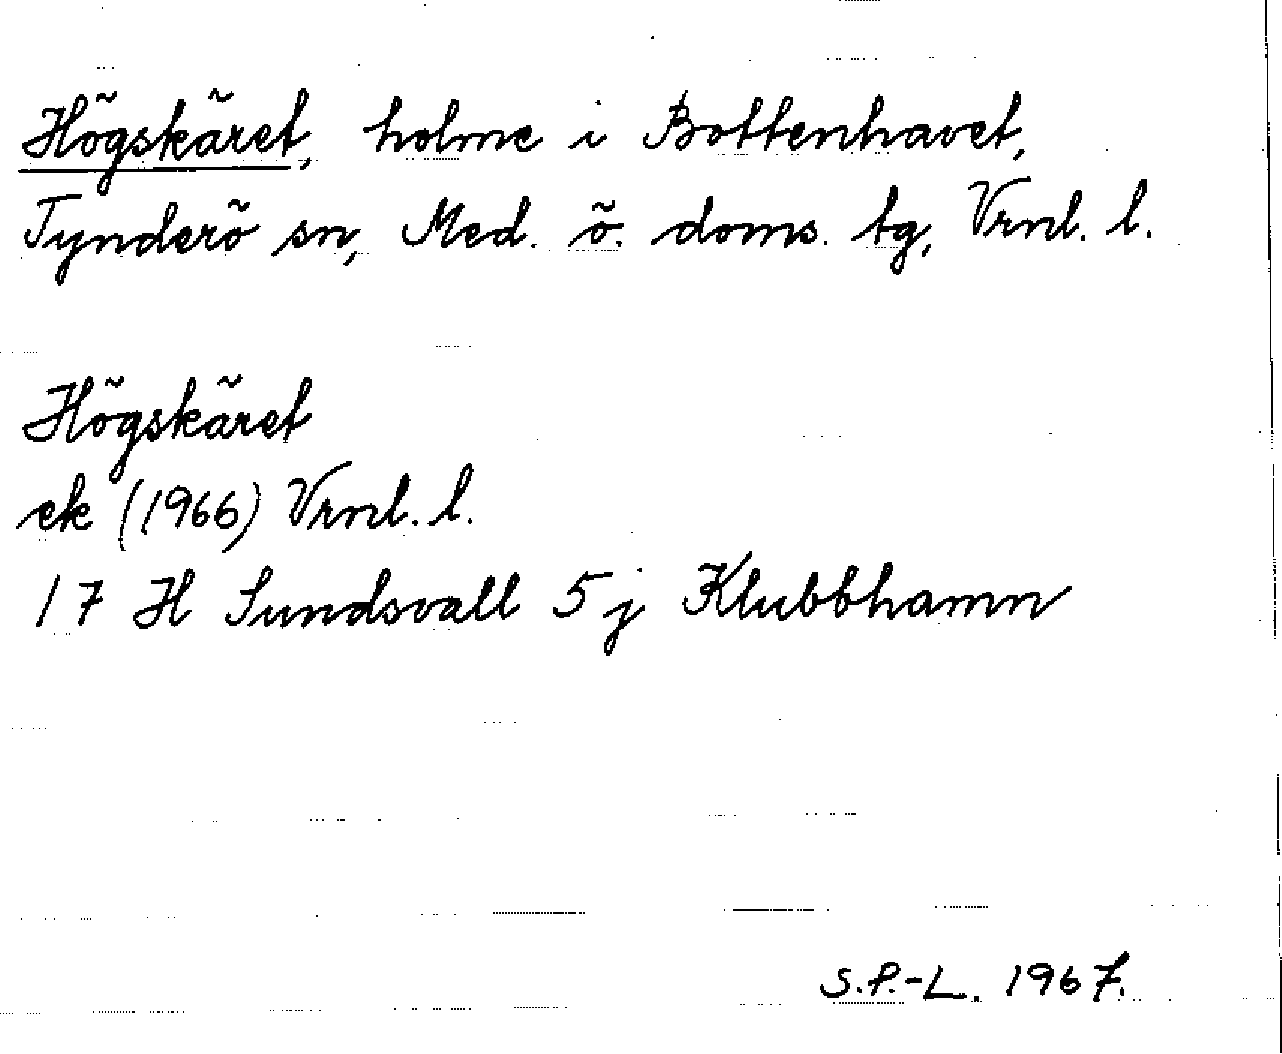 Högskäret, holme i Bottenhavet,
Tynderö sn, Med. ö. doms. tg, Vrnl. l.
Högskäret
ek (1966) Vrnl. l.
17 H Sundsvall 5 j Klubbhamn
S.P.-L. 1967.